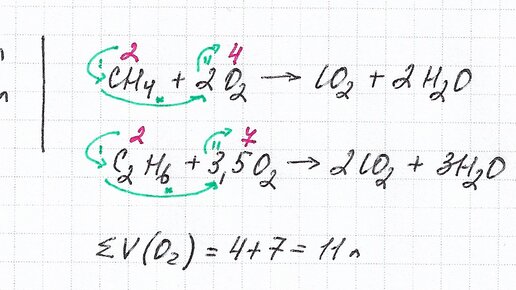 2 4
CH₄ + 2O₂ → CO₂ + 2H₂O
2 7
C₂H₆ + 3,5O₂ → 2CO₂ + 3H₂O
ΣV(O₂) = 4 + 7 = 11 л